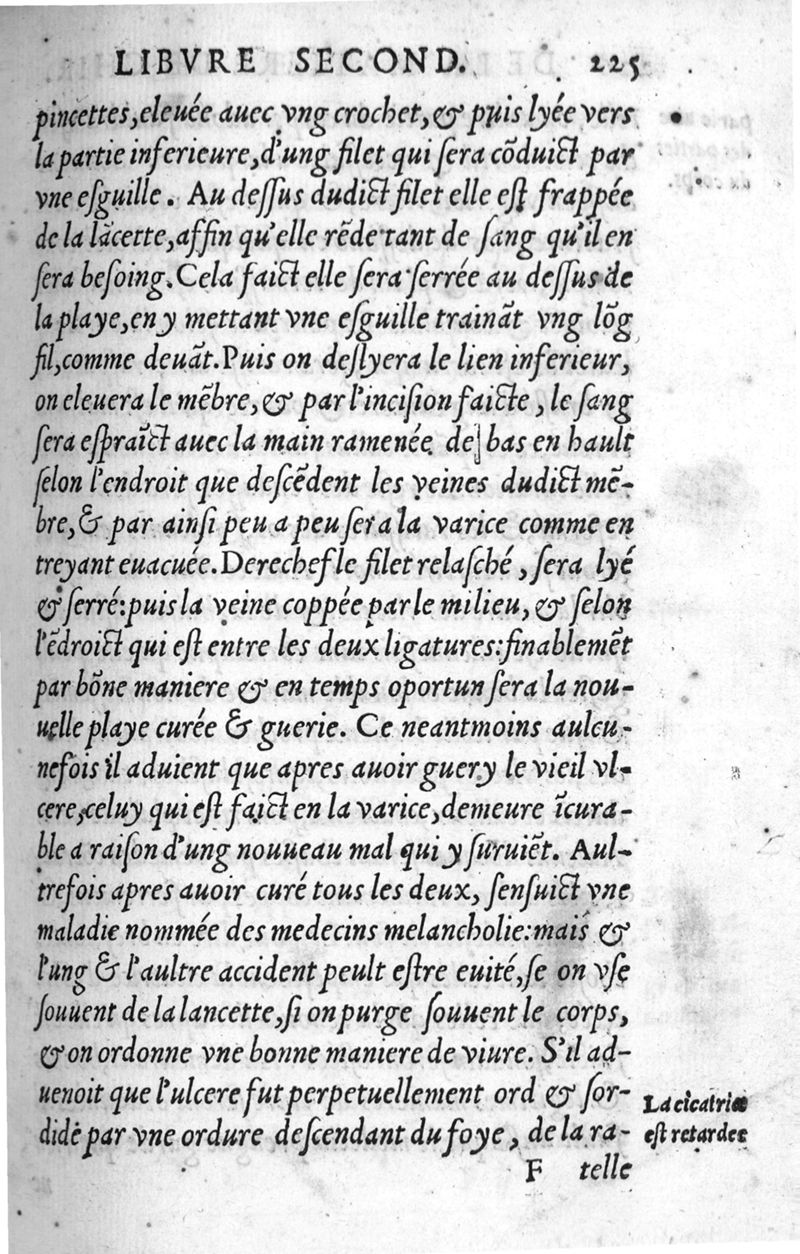 LIBVRE SECOND. 225
pincettes, eleuée auec vng crochet, & puis lyée vers
la partie inferieure, d'ung filet qui sera cõduict par
vne esguille. Au dessus dudict filet elle est frappée
de la lãcette, affin qu'elle rẽde tant de sang qu'il en
sera besoing. Cela faict elle sera serrée au dessus de
la playe, en y mettant vne esguille trainãt vng lõg
fil, comme deuãt. Puis on deslyera le lien inferieur,
on eleuera le mẽbre, & par l'incision faicte, le sang
sera espraĩct auec la main ramenée de bas en hault
selon l'endroit que descẽdent les veines dudict mẽ-
bre, & par ainsi peu a peu sera la varice comme en
treyant euacuée. Derechef le filet relasché, sera lyé
& serré: puis la veine coppée par le milieu, & selon
l'ẽdroict qui est entre les deux ligatures: finablemẽt
par bõne maniere & en temps oportun sera la nou-
uelle playe curée & guerie. Ce neantmoins aulcu-
nefois il aduient que apres auoir guery le vieil vl-
cere, celuy qui est faict en la varice, demeure ĩcura-
ble a raison d'ung nouueau mal qui y suruiẽt. Aul-
trefois apres auoir curé tous les deux, sensuict vne
maladie nommée des medecins melancholie: mais &
l'ung & l'aultre accident peult estre euité, se on vse
souuent de la lancette, si on purge souuent le corps,
& on ordonne vne bonne maniere de viure. S'il ad-
uenoit que l'ulcere fut perpetuellement ord & sor-
dide par vne ordure descendant du foye, de la ra-
La cicatrice
est retardee
F telle